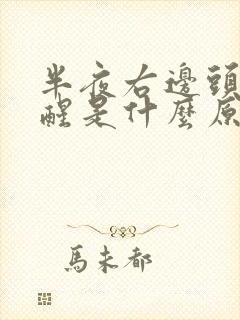 半夜右邊頭
醒是什麼原
馬未都